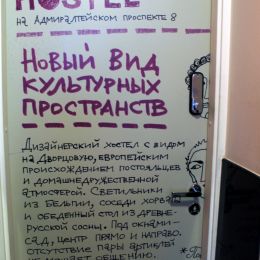 HOSTEL
на Адмиралтейском проспекте 8
Новый вид
культурных
пространств
Дизайнерский хостел с видом
на Дворцовую, европейским
происхождением постояльцев
и домашнедружественной
атмосферой. Светильники
из Бельгии, соседи хорва
и обеденный стол из древне-
русской сосны. Под окнами-
сад, центр прямо и направо.
Отсутствие пары артиклей
не мешает общению.